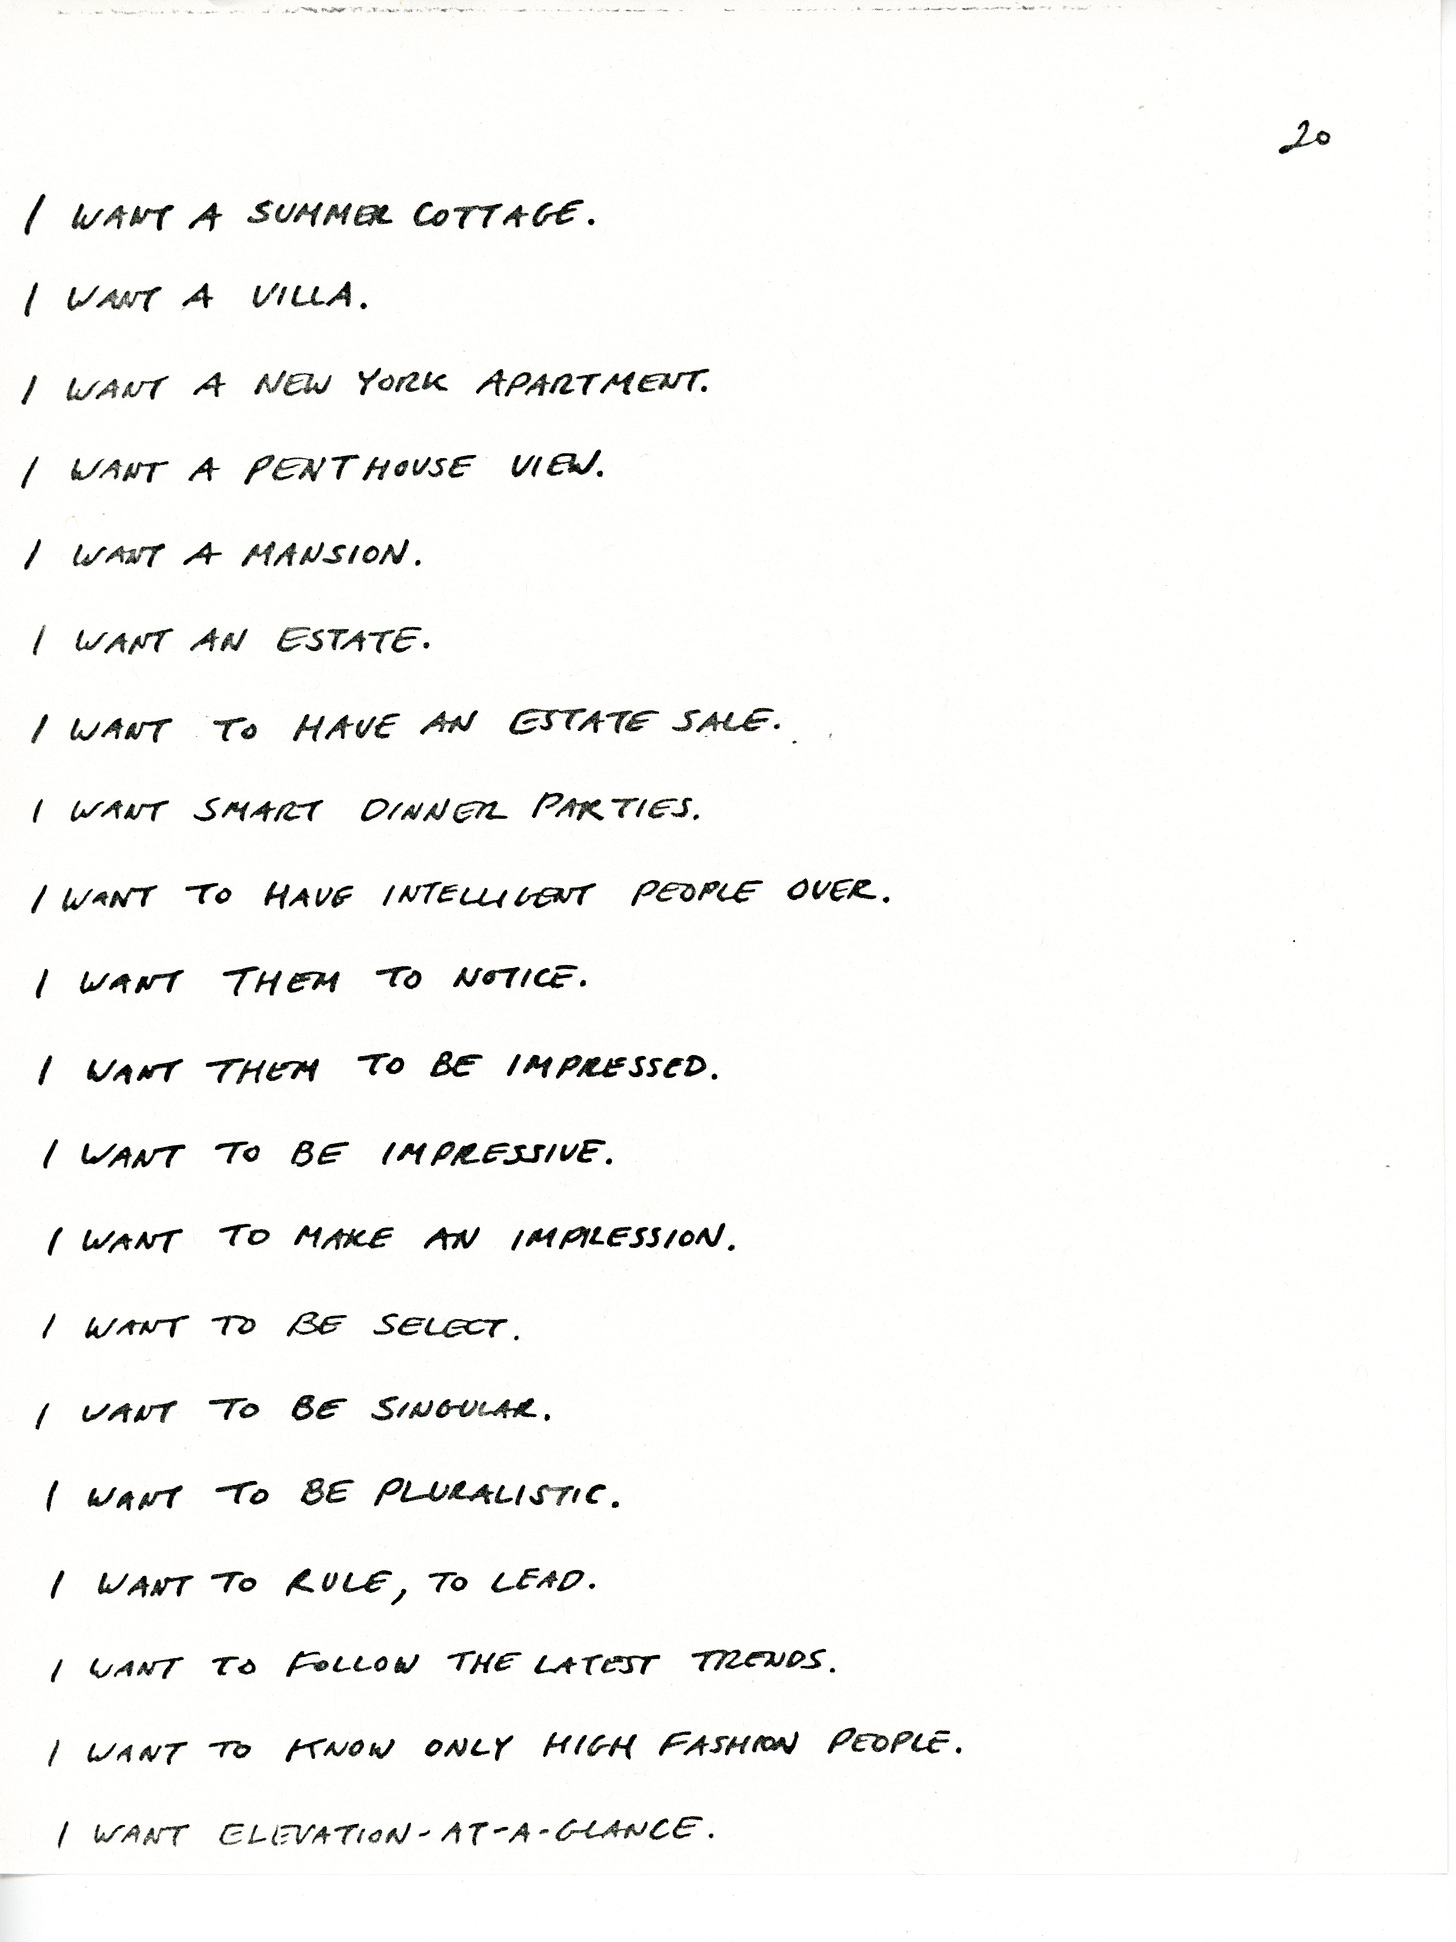 20
I WANT A SUMMER COTTAGE.
I WANT A VILLA.
I WANT A NEW YORK APARTMENT.
I WANT A PENTHOUSE VIEW.
I WANT A MANSION.
I WANT AN ESTATE.
I WANT TO HAVE AN ESTATE SALE.
I WANT SMART DINNER PARTIES.
I WANT TO HAVE INTELLIGENT PEOPLE OVER.
I WANT THEM TO NOTICE.
I WANT THEM TO BE IMPRESSED.
I WANT TO BE IMPRESSIVE.
I WANT TO MAKE AN IMPRESSION.
I WANT TO BE SELECT.
I WANT TO BE SINGULAR.
I WANT TO BE PLURALISTIC.
I WANT TO RULE, TO LEAD.
I WANT TO FOLLOW THE LATEST TRENDS.
I WANT TO KNOW ONLY HIGH FASHION PEOPLE.
I WANT ELEVATION-AT-A-GLANCE.